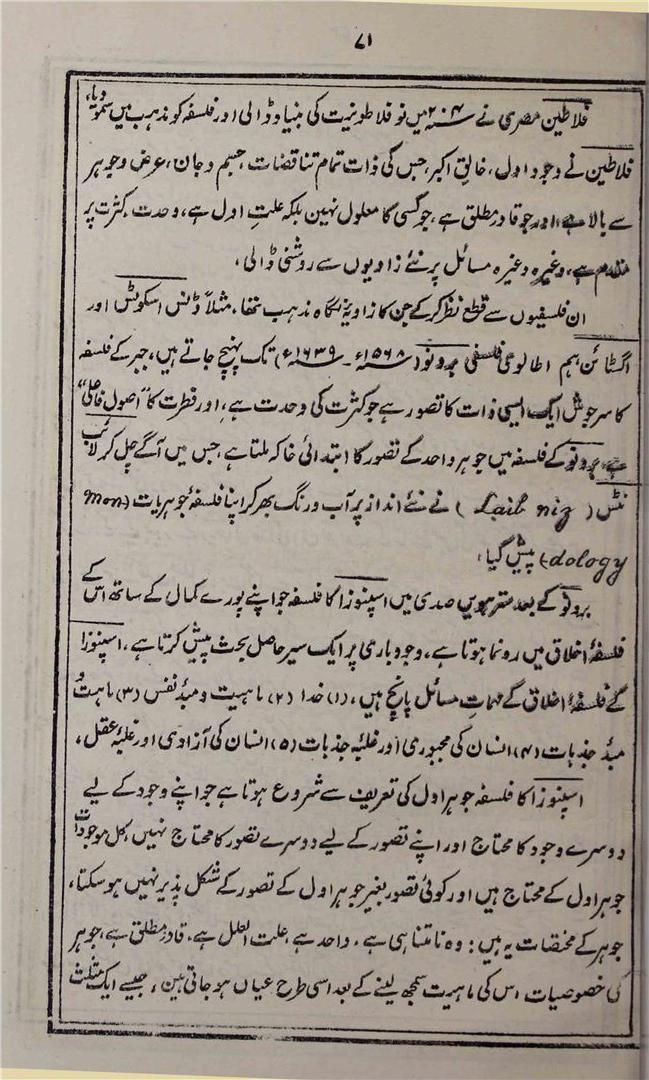 ۷۱
فلاطین مصری نے ۲۰۴ء میں نو فلاطونیت کی بنیاد ڈالی اور فلسفہ کو مذہب میں سمو دیا،
فلاطین نے وجود اول، خالق اکبر، جس کی ذات تمام تناقضات، جسم و جان، عرض و جوہر
سے بالا ہے، اور جو قادر مطلق ہے، جو کسی کا معلول نہیں بلکہ علتِ اول ہے، وحدت کثرت پر
مقدم ہے، وغیرہ وغیرہ مسائل پر نئے زاویوں سے روشنی ڈالی،
ان فلسفیوں سے قطع نظر کر کے جن کا زاویۂ نگاہ مذہب تھا، مثلاً ڈنس اسکوٹس اور
اگسٹائن ہم اطالوی فلسفی برونو (۱۵۶۸ء - ۱۶۳۹ء) تک پہنچ جاتے ہیں، جبر کے فلسفہ
کا سرجوش ایک ایسی ذات کا تصور ہے جو کثرت کی وحدت ہے، اور فطرت کا "اصول فاعلی"
ہے، برونو کے فلسفہ میں جوہر واحد کے تصور کا ابتدائی خاکہ ملتا ہے، جس میں آگے چل کر لائب
نٹس (Laib niz) نے نئے انداز پر آب و رنگ بھر کر اپنا فلسفۂ جوہریات (mon-
dology) پیش کیا،
برونو کے بعد سترہویں صدی میں اسپنوزا کا فلسفہ جو اپنے پورے کمال کے ساتھ اس کے
فلسفۂ اخلاق میں رونما ہوتا ہے، وجود باری پر ایک سیر حاصل بحث پیش کرتا ہے، اسپنوزا
کے فلسفۂ اخلاق کے مہمات مسائل پانچ ہیں، (۱) خدا (۲) ماہیت و مبدٔ نفس (۳) ماہیت و
مبدٔ جذبات (۴) انسان کی مجبوری اور غلبۂ جذبات (۵) انسان کی آزادی اور غلبۂ عقل،
اسپنوزا کا فلسفہ جوہر اول کی تعریف سے شروع ہوتا ہے جو اپنے وجود کے لیے
دوسرے وجود کا محتاج اور اپنے تصور کے لیے دوسرے تصور کا محتاج نہیں، کل موجودات
جوہر اول کے محتاج ہیں اور کوئی تصور بغیر جوہر اول کے تصور کے شکل پذیر نہیں ہو سکتا،
جوہر کے مختصات یہ ہیں: وہ نامتناہی ہے، واحد ہے، علت العلل ہے، قادر مطلق ہے، جوہر
کی خصوصیات اس کی ماہیت سمجھ لینے کے بعد اسی طرح عیاں ہو جاتی ہیں، جیسے ایک مثلث